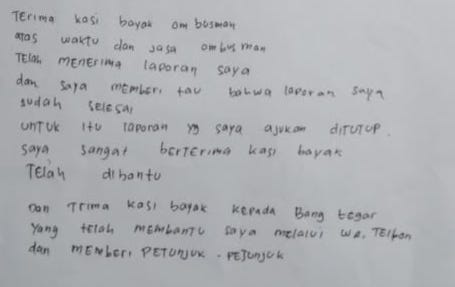 Terima kasi bayak ombusman
atas waktu dan jasa ombusman
Telah menerima laporan saya
dan saya memberi tau bahwa laporan saya
sudah selesai
untuk itu laporan yg saya ajukan ditutup.
saya sangat berterima kasi bayak
Telah dibantu
Dan Trima kasi bayak kepada Bang tegar
Yang telah membantu saya melalui WA, Telpon
dan memberi petunjuk-petunjuk